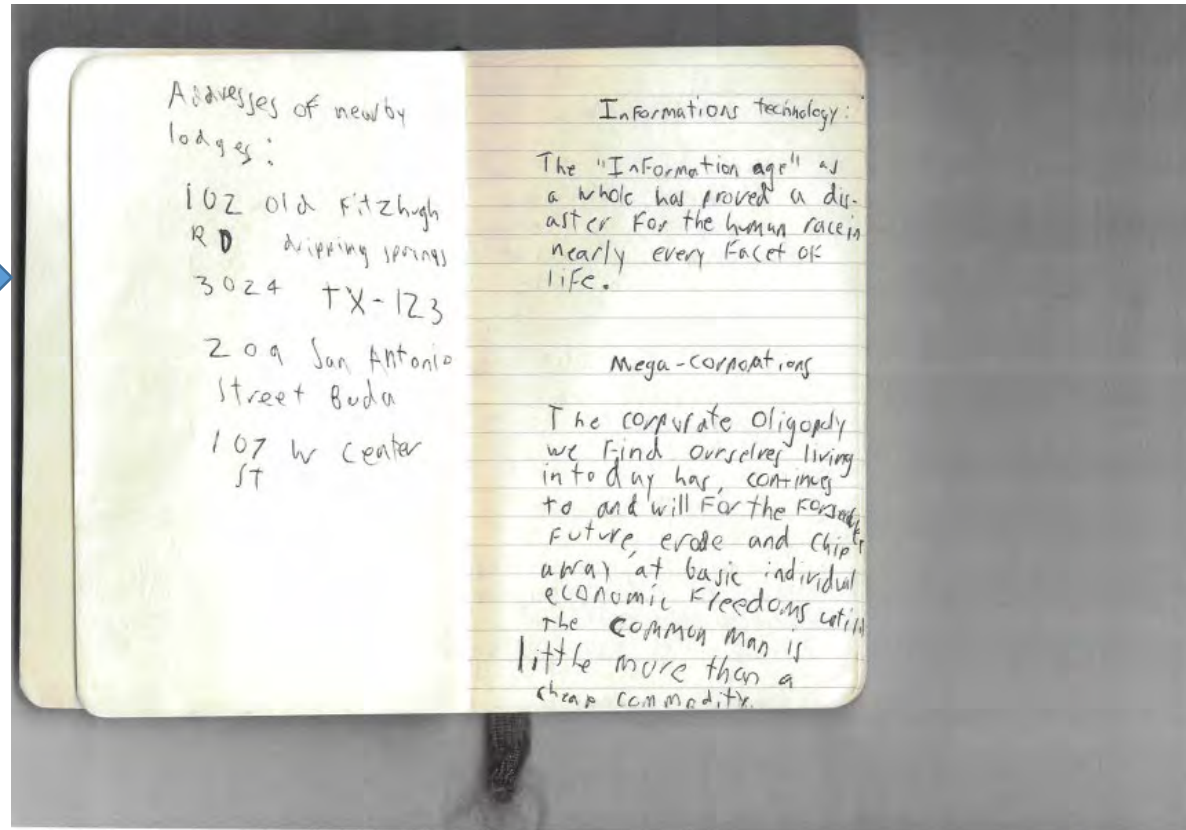 Addresses of newby
lodges:
102 Old Fitzhugh
RD dripping springs
3024 TX-123
209 San Antonio
Street Buda
107 W Center
ST
Informations technology:
The "Information age" as
a whole has proved a dis-
aster For the human race in
nearly every Facet of
life.
Mega-corporations
The corporate Oligopoly
we Find ourselves living
in today has, continues
to and will For the
Future, erode and chip
away at basic individual
economic Freedoms until
the common man is
little more than a
cheap commodity.